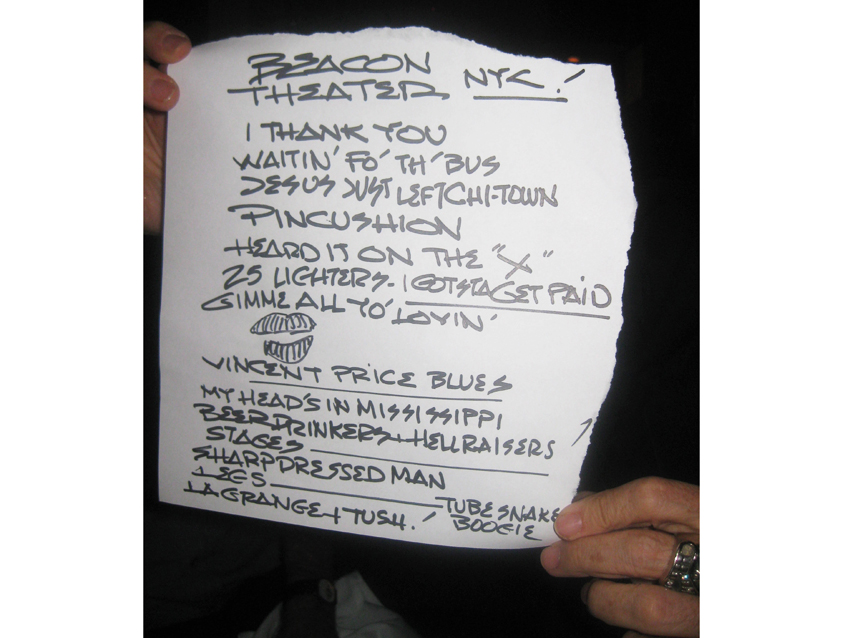 BEACON
THEATER NYC!
I THANK YOU
WAITIN' FO' TH' BUS
JESUS JUST LEFT CHI-TOWN
PINCUSHION
HEARD IT ON THE "X"
25 LIGHTERS- I GOTSTA GET PAID
GIMME ALL YO' LOVIN'
VINCENT PRICE BLUES
MY HEAD'S IN MISSISSIPPI
BEERDRINKERS + HELLRAISERS
STAGES
SHARP DRESSED MAN
LEGS
LAGRANGE + TUSH! TUBE SNAKE
BOOGIE